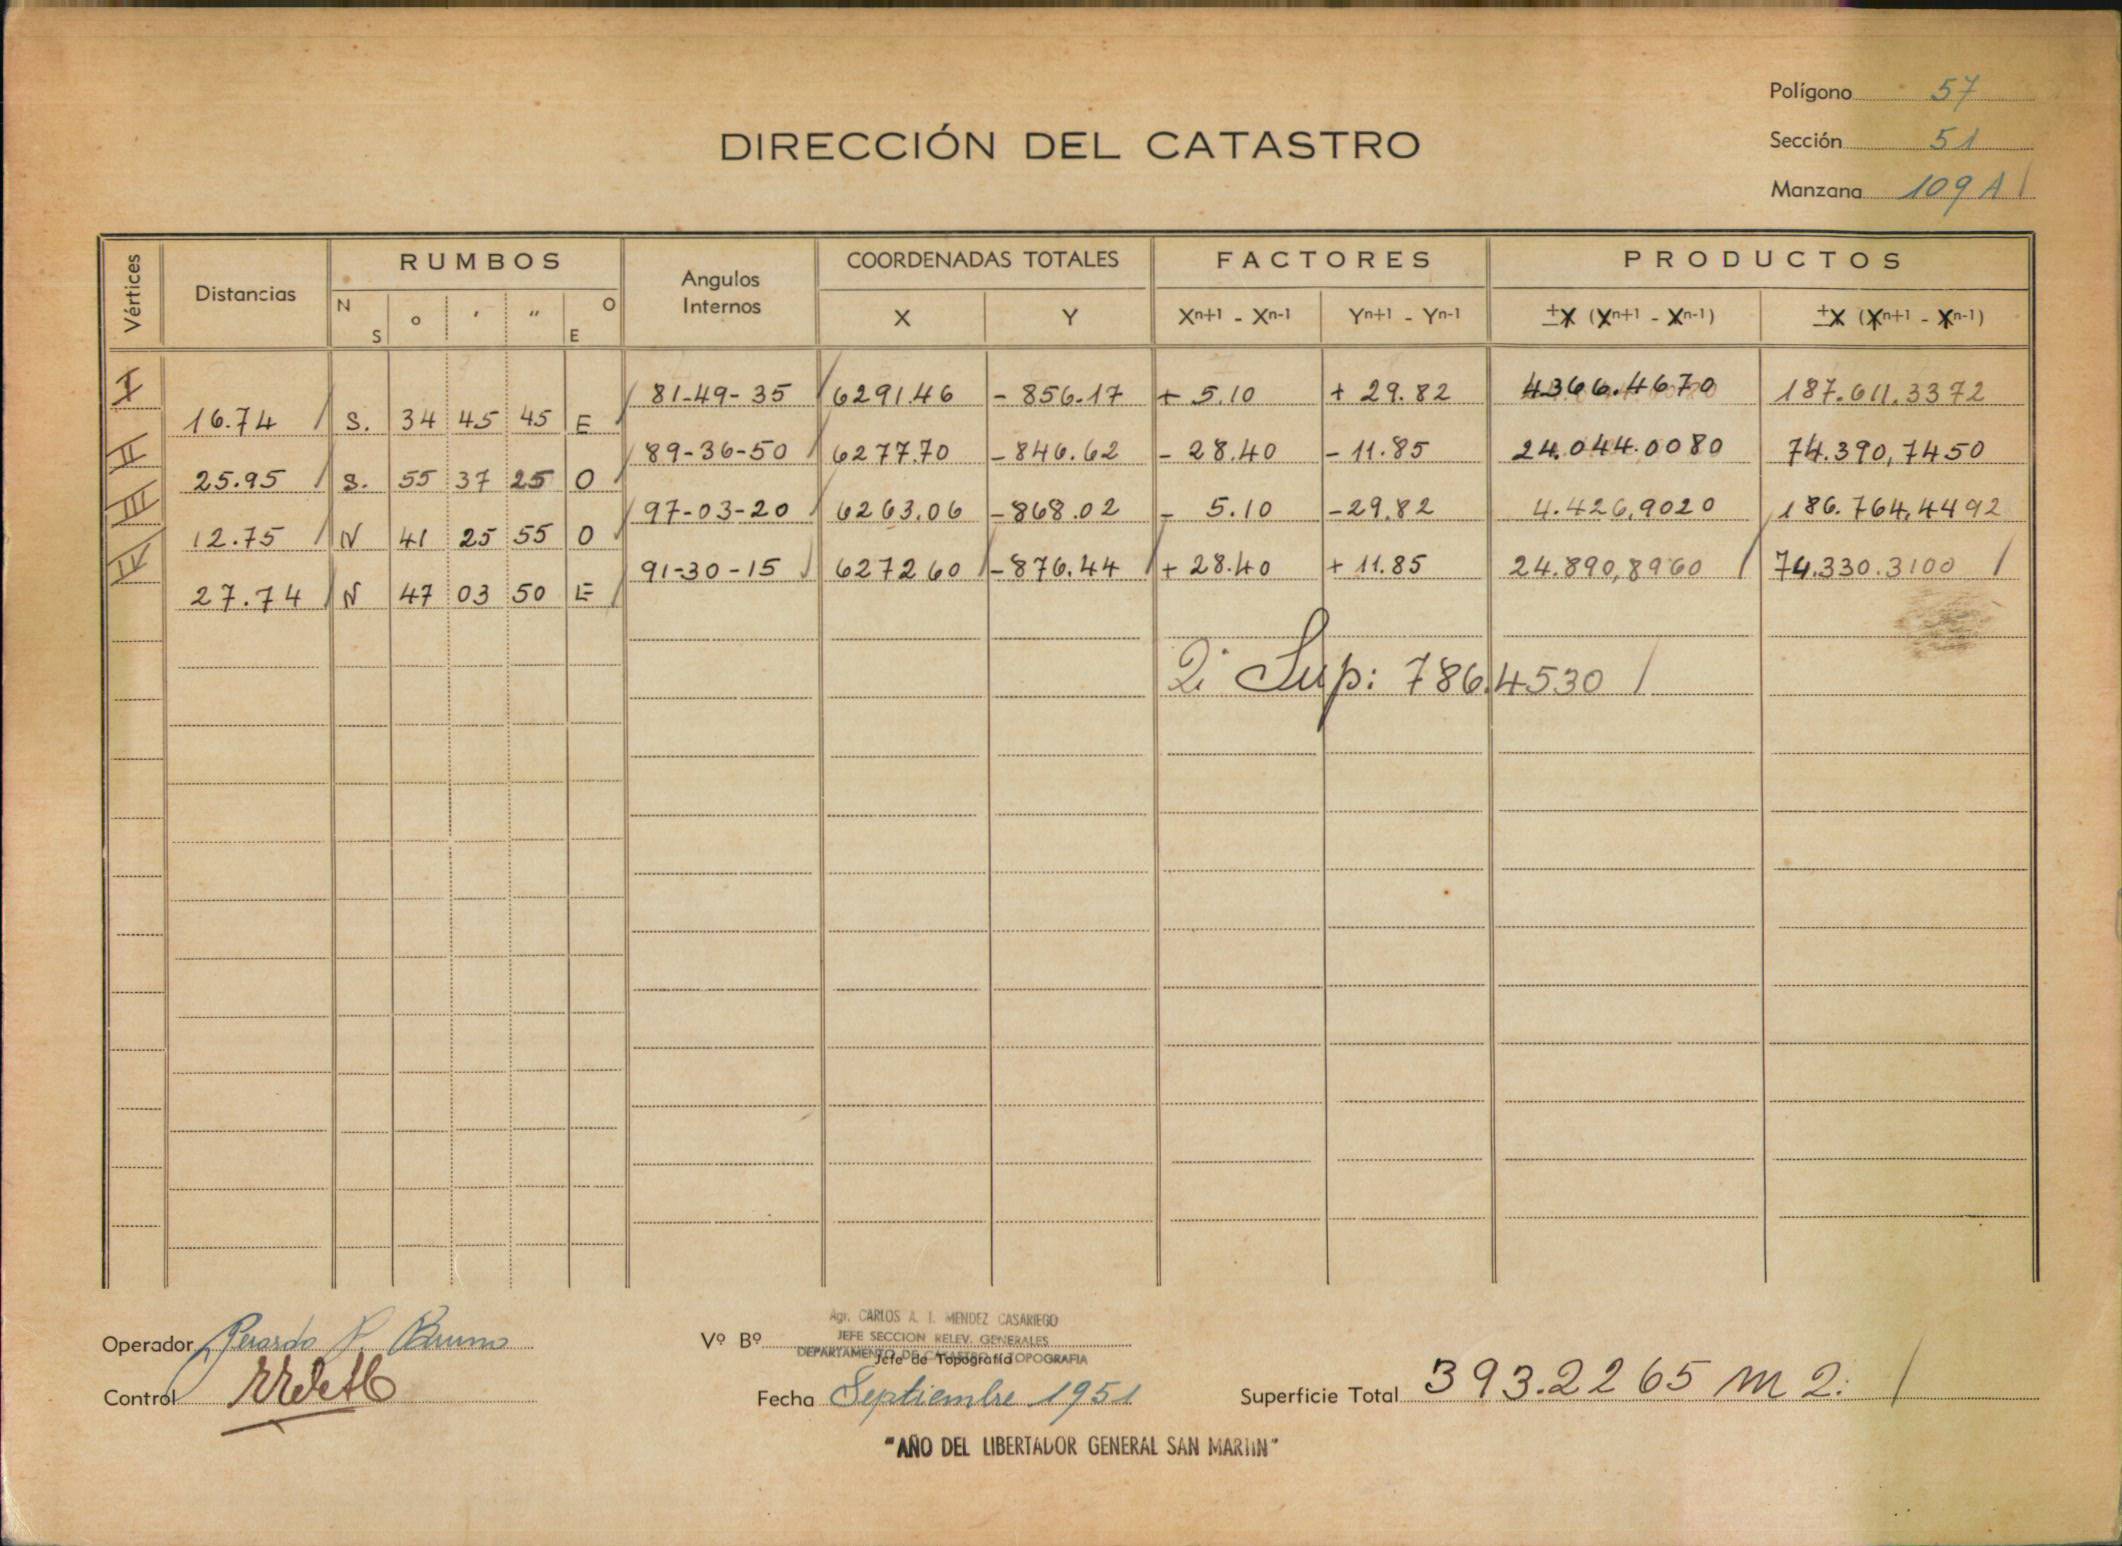 Polígono 57
DIRECCIÓN DEL CATASTRO
Sección 51
Manzana 109 A
Vértices Distancias RUMBOS Angulos Internos COORDENADAS TOTALES FACTORES PRODUCTOS
N S o ' " O E X Y Xn+1 - Xn-1 Yn+1 - Yn-1 ±X (Xn+1 - Xn-1) ±X (Xn+1 - Xn-1)
I 81-49-35 6291.46 - 856.17 + 5.10 + 29.82 4366.4670 187.611.3372
16.74 S. 34 45 45 E
II 89-36-50 6277.70 - 846.62 - 28.40 - 11.85 24.044.0080 74.390,7450
25.95 S. 55 37 25 O
III 97-03-20 6263.06 - 868.02 - 5.10 - 29.82 4.426,9020 186.764,4492
12.75 N 41 25 55 O
IV 91-30-15 6272 60 - 876.44 + 28.40 + 11.85 24.890,8960 74.330.3100
27.74 N 47 03 50 E
2 Sup: 786.4530
Operador Gerardo P. Bruno
Vº Bº Agr. CARLOS A. I. MENDEZ CASARIEGO
JEFE SECCION RELEV. GENERALES
DEPARTAMENTO DE CATASTRO Y TOPOGRAFIA
Jefe de Topografía
Control
Fecha Septiembre 1951
Superficie Total 393.2265 m 2.
"AÑO DEL LIBERTADOR GENERAL SAN MARTIN"